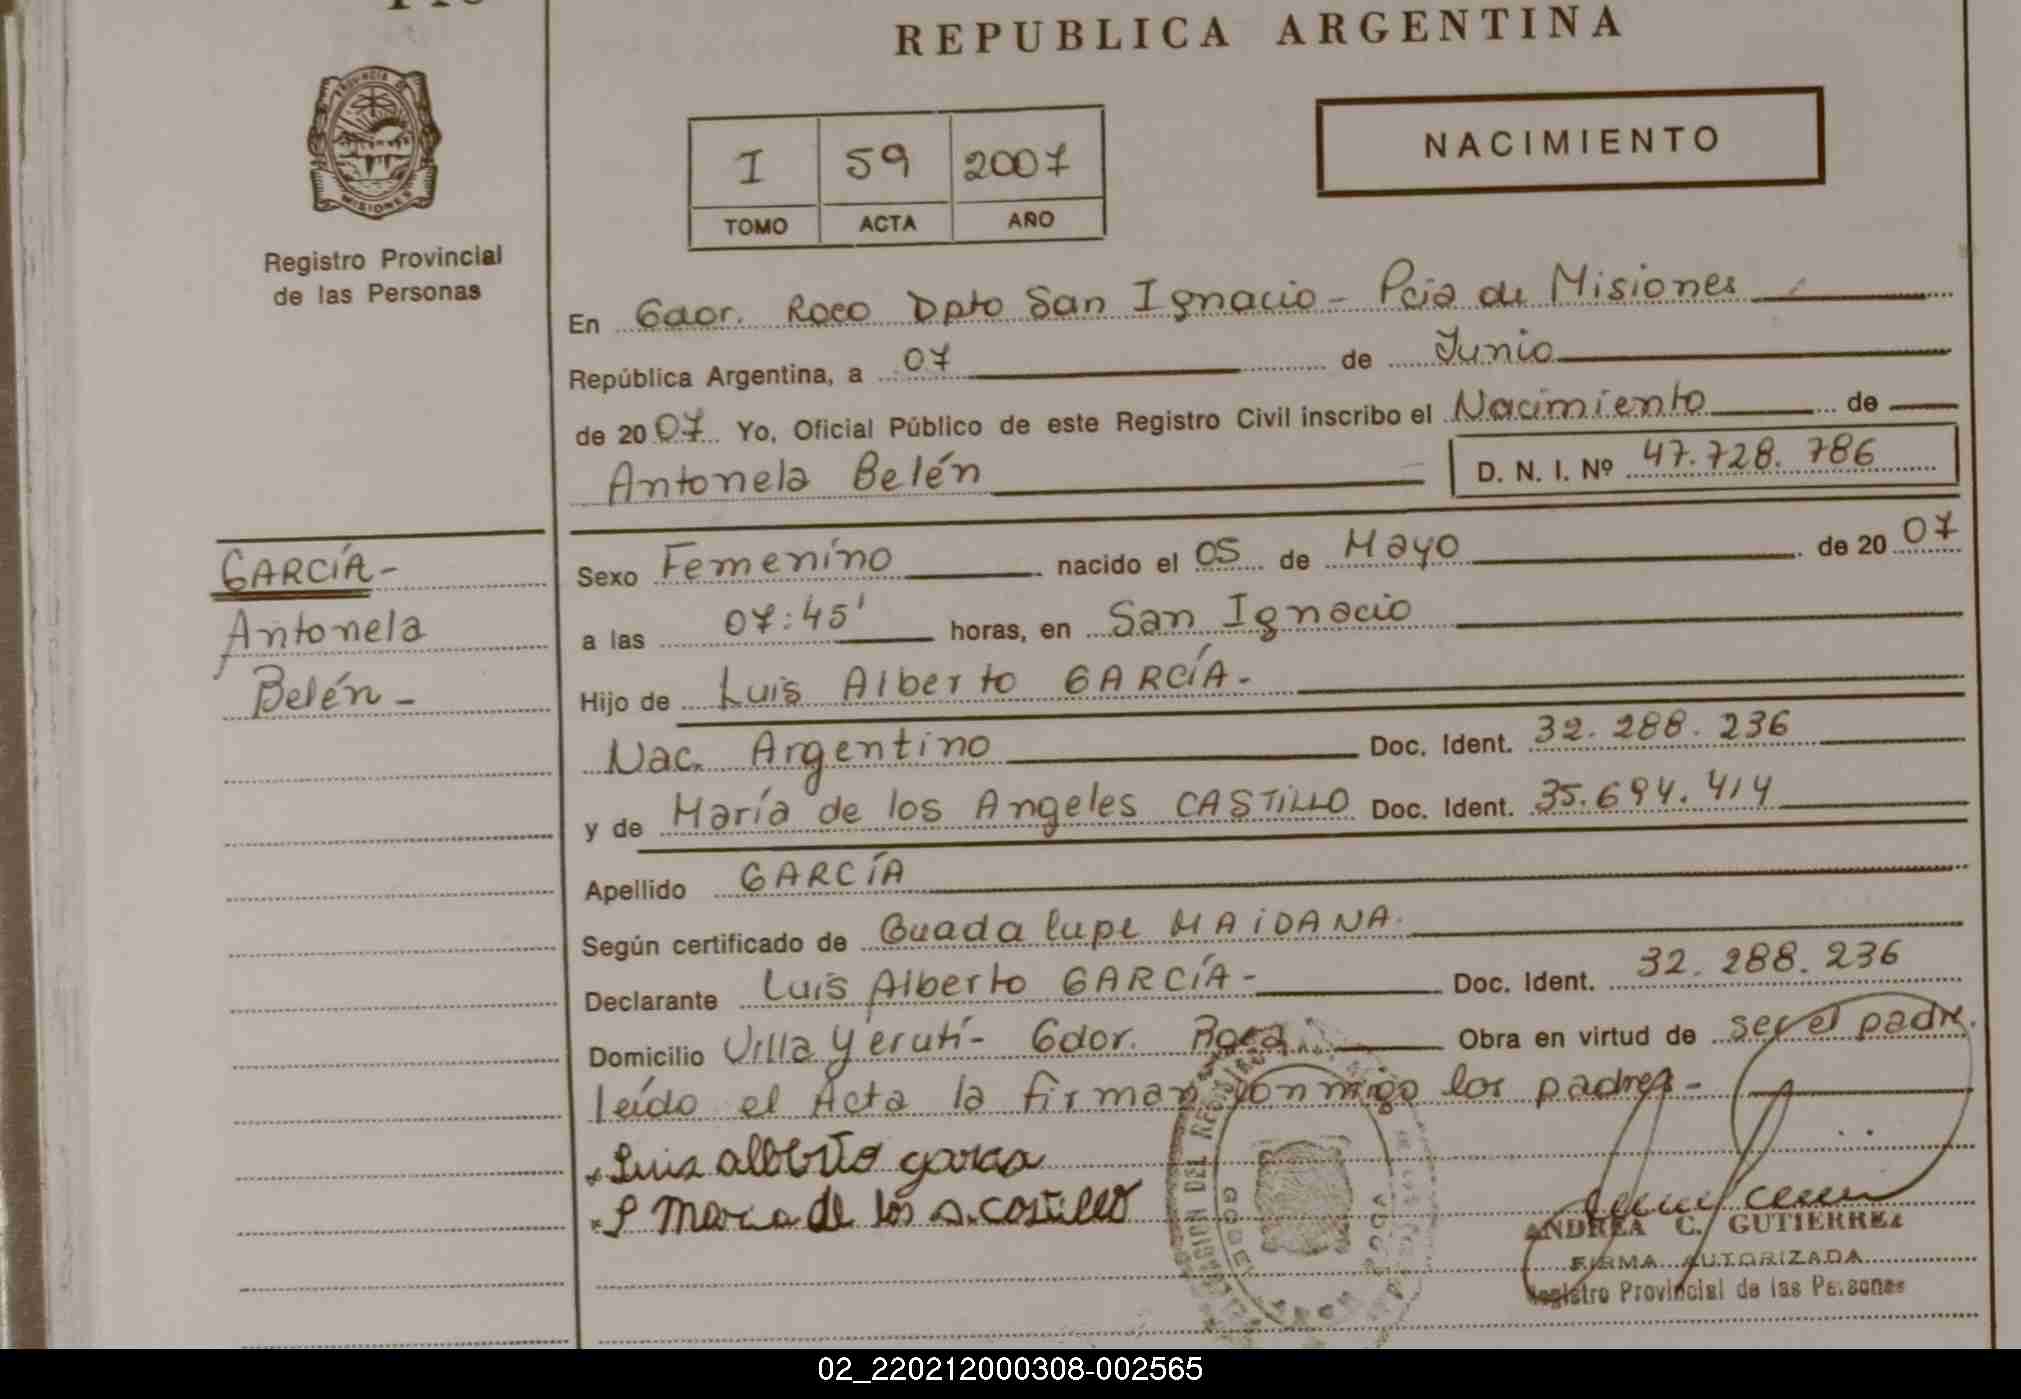 REPUBLICA ARGENTINA
PROVINCIA DE
MISIONES
Registro Provincial
de las Personas
I 59 2007
TOMO ACTA AÑO
NACIMIENTO
En Gdor. Roca Dpto San Ignacio - Pcia de Misiones
República Argentina, a 07 de Junio
de 2007 Yo, Oficial Público de este Registro Civil inscribo el Nacimiento de
Antonela Belén D. N. I. Nº 47.728.786
GARCÍA-
Antonela
Belén -
Sexo Femenino nacido el 05 de Mayo de 2007
a las 07:45' horas, en San Ignacio
Hijo de Luis Alberto GARCÍA-
Nac. Argentino Doc. Ident. 32.288.236
y de María de los Angeles CASTILLO Doc. Ident. 35.694.414
Apellido GARCÍA
Según certificado de Guadalupe MAIDANA.
Declarante Luis Alberto GARCÍA- Doc. Ident. 32.288.236
Domicilio Villa Yerutí- Gdor. Roca Obra en virtud de ser el padre.
leído el Acta la firman conmigo los padres-
Luis alberto garcia
Maria de los A. Castillo
ANDREA C. GUTIERREZ
FIRMA AUTORIZADA
Registro Provincial de las Personas
02_220212000308-002565